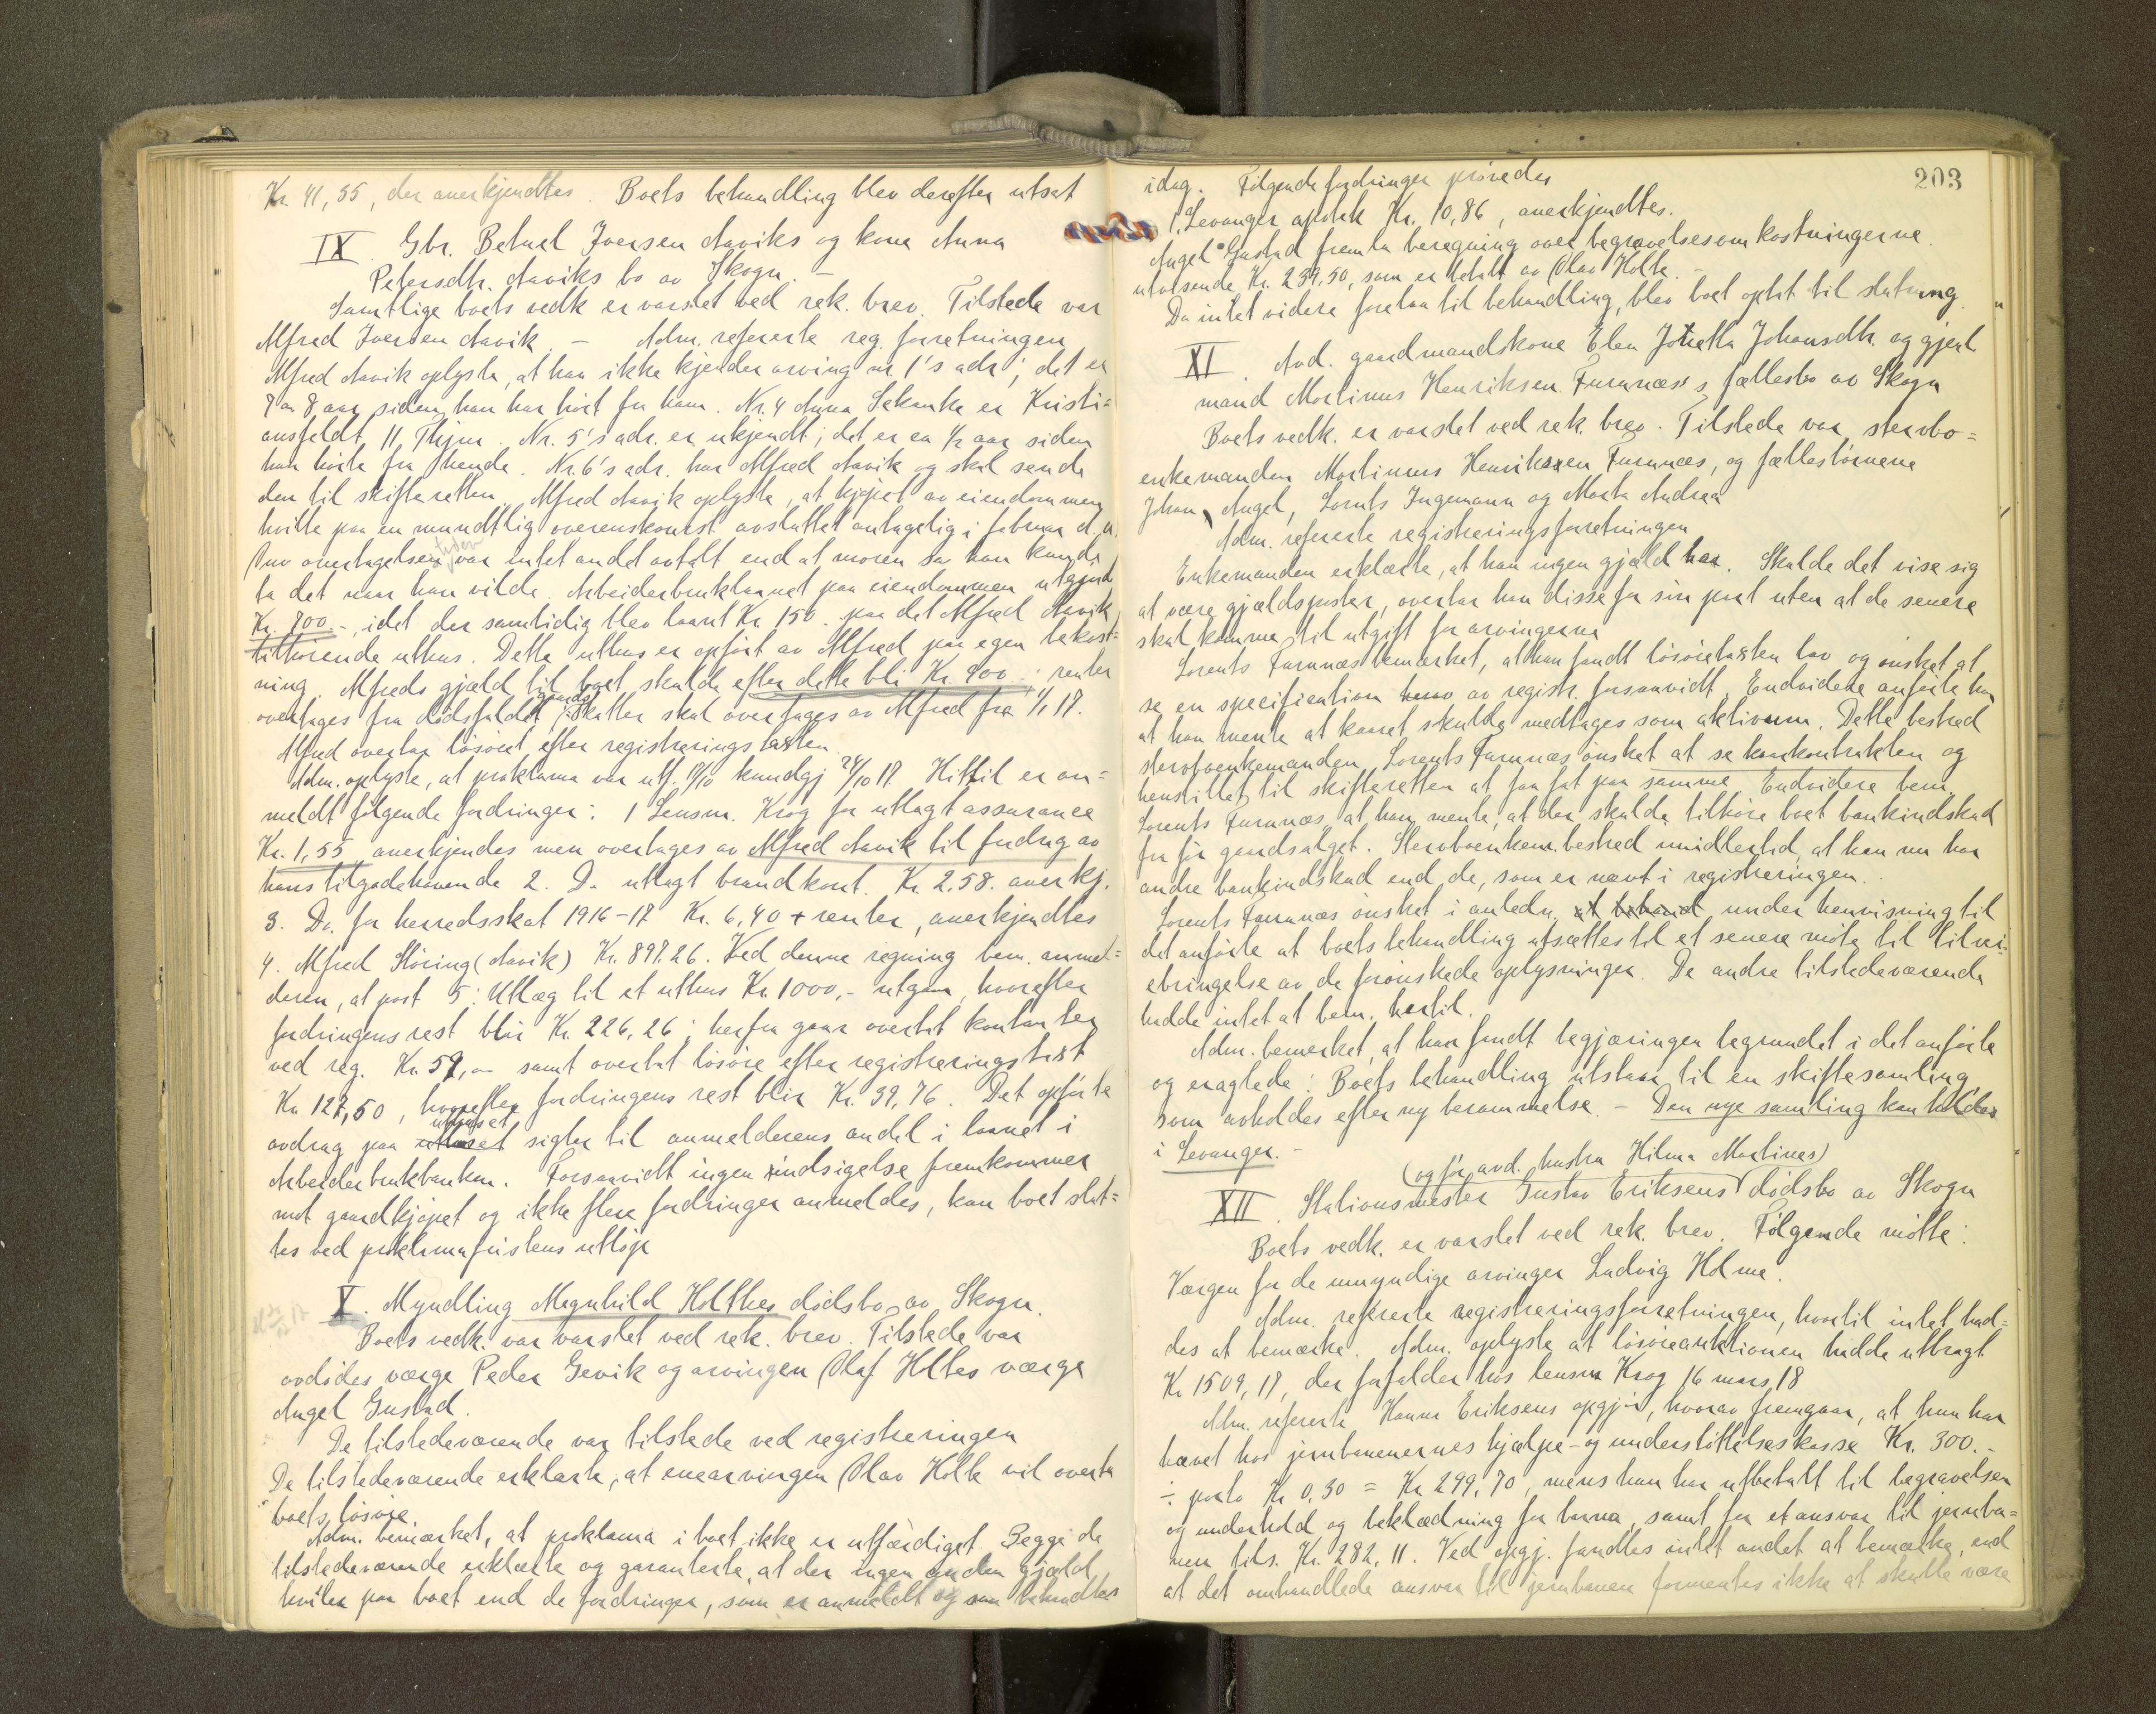 Kr. 41,55, der anerkjendtes. Boets behandling blev derefter utsat
IX. Gbr. Betuel Iversen Aaviks og kone Anna
Petersdtr. Aaviks bo av Skogn. -
Samtlige boets vedk er varslet ved rek. brev. Tilstede var
Alfred Iversen Aavik. - Adm. refererte reg. forretningen
Alfred Aavik oplyste, at han ikke kjender arving nr 1's adr; det er
7 a 8 aar siden han har hørt fra ham. Nr. 4 Anna er Kristi=
ansfeldt 11, Thjem. Nr. 5's adr. er ukjendt; det er ca 1/2 aar siden
han hørte fra hende. Nr. 6's adr. har Alfred Aavik og skal sende
den til skifteretten. Alfred Aavik oplyste, at kjøpet av eiendommen
hvilte paa en mundtlig overenskomst avsluttet antagelig i februar d. a.
Om overtagelsen tiden var intet andet avtalt end at moren sa han kunde
ta det naar han vilde. Arbeiderbruklaanet paa eiendommen utgjorde
Kr. 700.-, idet der samtidig blev laant Kr 150. paa det Alfred Aavik
tilhørende uthus. Dette uthus er opført av Alfred paa egen bekost=
ning. Alfreds gjæld til boet skulde efter dette bli Kr. 900.-; renter
overtages fra dødsfaldet, Skatter skal overtages av Alfred fra 1/1 17.
Alfred overtar løsøret efter registreringstaksten.
Adm. oplyste, at proklama var utf. 17/10 kundgj 24/10 17. Hittil er an=
meldt følgende fordringer: 1 Lensm. Krog for utlagt assurance
Kr. 1,55 anerkjendes men overtages av Alfred Aavik til fradrag av
hans tilgodehavende 2. Do utlagt brandkont. Kr. 2,58. anerkj.
3. Do. for herredsskat 1916-17 Kr. 6,40 + renter, anerkjendtes
4. Alfred Støring (Aavik) Kr. 897.26. Ved denne regning bem. anmel=
deren, at post 5: Utlæg til et uthus Kr. 1000,- utgaar, hvorefter
fordringens rest blir Kr. 226,26; herfra gaar overtat kontanter
ved reg. Kr. 59,- samt overtat løsøre efter registreringstakst
Kr 127,50, hvorefter fordringens rest blir Kr. 39,76. Det opførte
avdrag paa uthuset sigter til anmelderens andel i laanet i
Arbeiderbrukbanken. Forsaavidt ingen indsigelse fremkommer
mot gaardkjøpet og ikke flere fordringer anmeldes, kan boet slut=
tes ved proklamafristens utløp
X. Myndling Magnhild Holthes dødsbo av Skogn.
Boets vedk. var varslet ved rek. brev. Tilstede var
avdødes værge Peder Gevik og arvingen Olaf Holtes værge
Angel Gustad.
De tilstedeværende var tilstede ved registreringen
De tilstedeværende erklærte, at enearvingen Olav Holte vil overta
boets løsøre.
Adm. bemærket, at proklama i boet ikke er utfærdiget. Begge de
tilstedeværende erklærte og garanterte, at der ingen anden gjæld
hviler paa boet end de fordringer, som er anmeldt og som behandles
203
idag. Følgende fordringer prøvedes
1, Levanger apotek Kr. 10,86, anerkjendtes.
Angel Gustad fremla beregning over begravelsesomkostningerne
utvisende Kr. 239,50, som er betalt av Olav Holte. -
Da intet videre forelaa til behandling, blev boet optat til slutning.
XI. Avd. gaardmandskone Elen Johansdtr. og gjenl
mand Martinus Henriksen Furunæs's fællesbo av Skogn
Boets vedk. er varslet ved rek. brev. Tilstede var stervbo=
enkemanden Martinus Henriksen Furunæs, og fællesbørnene
Johan, Angel, Lorents Ingemann og Marta Andrea
Adm. refererte registreringsforretningen
Enkemanden erklærte, at han ingen gjæld har. Skulde det vise sig
at være gjældsposter, overtar han disse for sin part uten at de senere
skal komme til utgift for arvingerne
Lorents Furunæs bemærket, at han fandt løsøretaksten lav og ønsket at
se en specification av registr. forsaavidt. Endvidere anførte han
at han mente at kaaret skulde medtages som aktivum. Dette bestred
stervboenkemanden. Lorents Furunæs ønsket at se kaarkontrakten og
henstillet til skifteretten at faa fat paa samme. Endvidere bem.
Lorents Furunæs, at han mente, at der skulde tilhøre boet bankindskud
fra før gaardsalget. Stervboenkem. bestred imidlertid, at han nu har
andre bankindskud end de, som er nævnt i registreringen.
Lorents Furunæs ønsket i anledn. under henvisning til
det anførte at boets behandling utsættes til et senere møte til tilvei=
ebringelse av de forønskede oplysninger. De andre tilstedeværende
hadde intet at bem. hertil.
Adm. bemerket, at han fandt begjæringen begrundet i det anførte
og eragtede: Boets behandling utstaar til en skiftesamling,
som avholdes efter ny berammelse. - Den nye samling kan holdes
i Levanger. -
(og før avd. hustru Hilma Martines)
XII. Stationsmester Gustav Eriksens dødsbo av Skogn
Boets vedk. er varslet ved rek. brev. Følgende møtte:
Værgen for de umyndige arvinger Ludvig Holme.
Adm. refererte registreringsforretningen, hvortil intet had=
des at bemærke. Adm. oplyste at løsøreauktionen hadde utbragt
Kr 1509,17, der forfalder hos lensm Krog 16 mars 18
Adm. refererte Hanna Eriksens opgjør, hvorav fremgaar, at hun har
hævet hos jernbanernes hjælpe- og understøttelseskasse Kr. 300.-
÷ porto Kr 0,30 = Kr 299,70, mens hun har utbetalt til begravelsen
og underhold og beklædning for barna, samt for et ansvar til jernba=
nen tils. Kr. 282,11. Ved opgj. fandtes intet andet at bemærke, end
at det omhandlede ansvar til jernbanen formentes ikke at skulle være